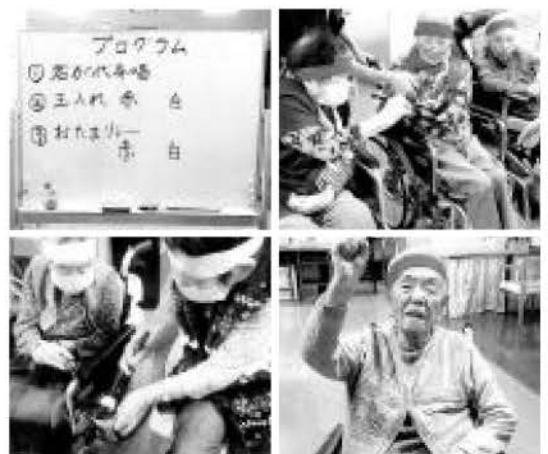 プログラム
① 君が代斉唱
② 玉入れ 赤 白
③ おたまリレー
赤 白